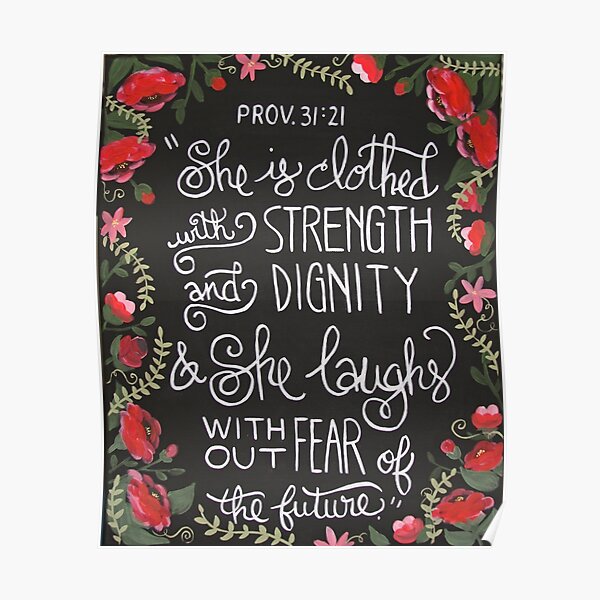 PROV. 31:21
"She is clothed
with STRENGTH
and DIGNITY
& She laughs
WITH
OUT FEAR of
the future."